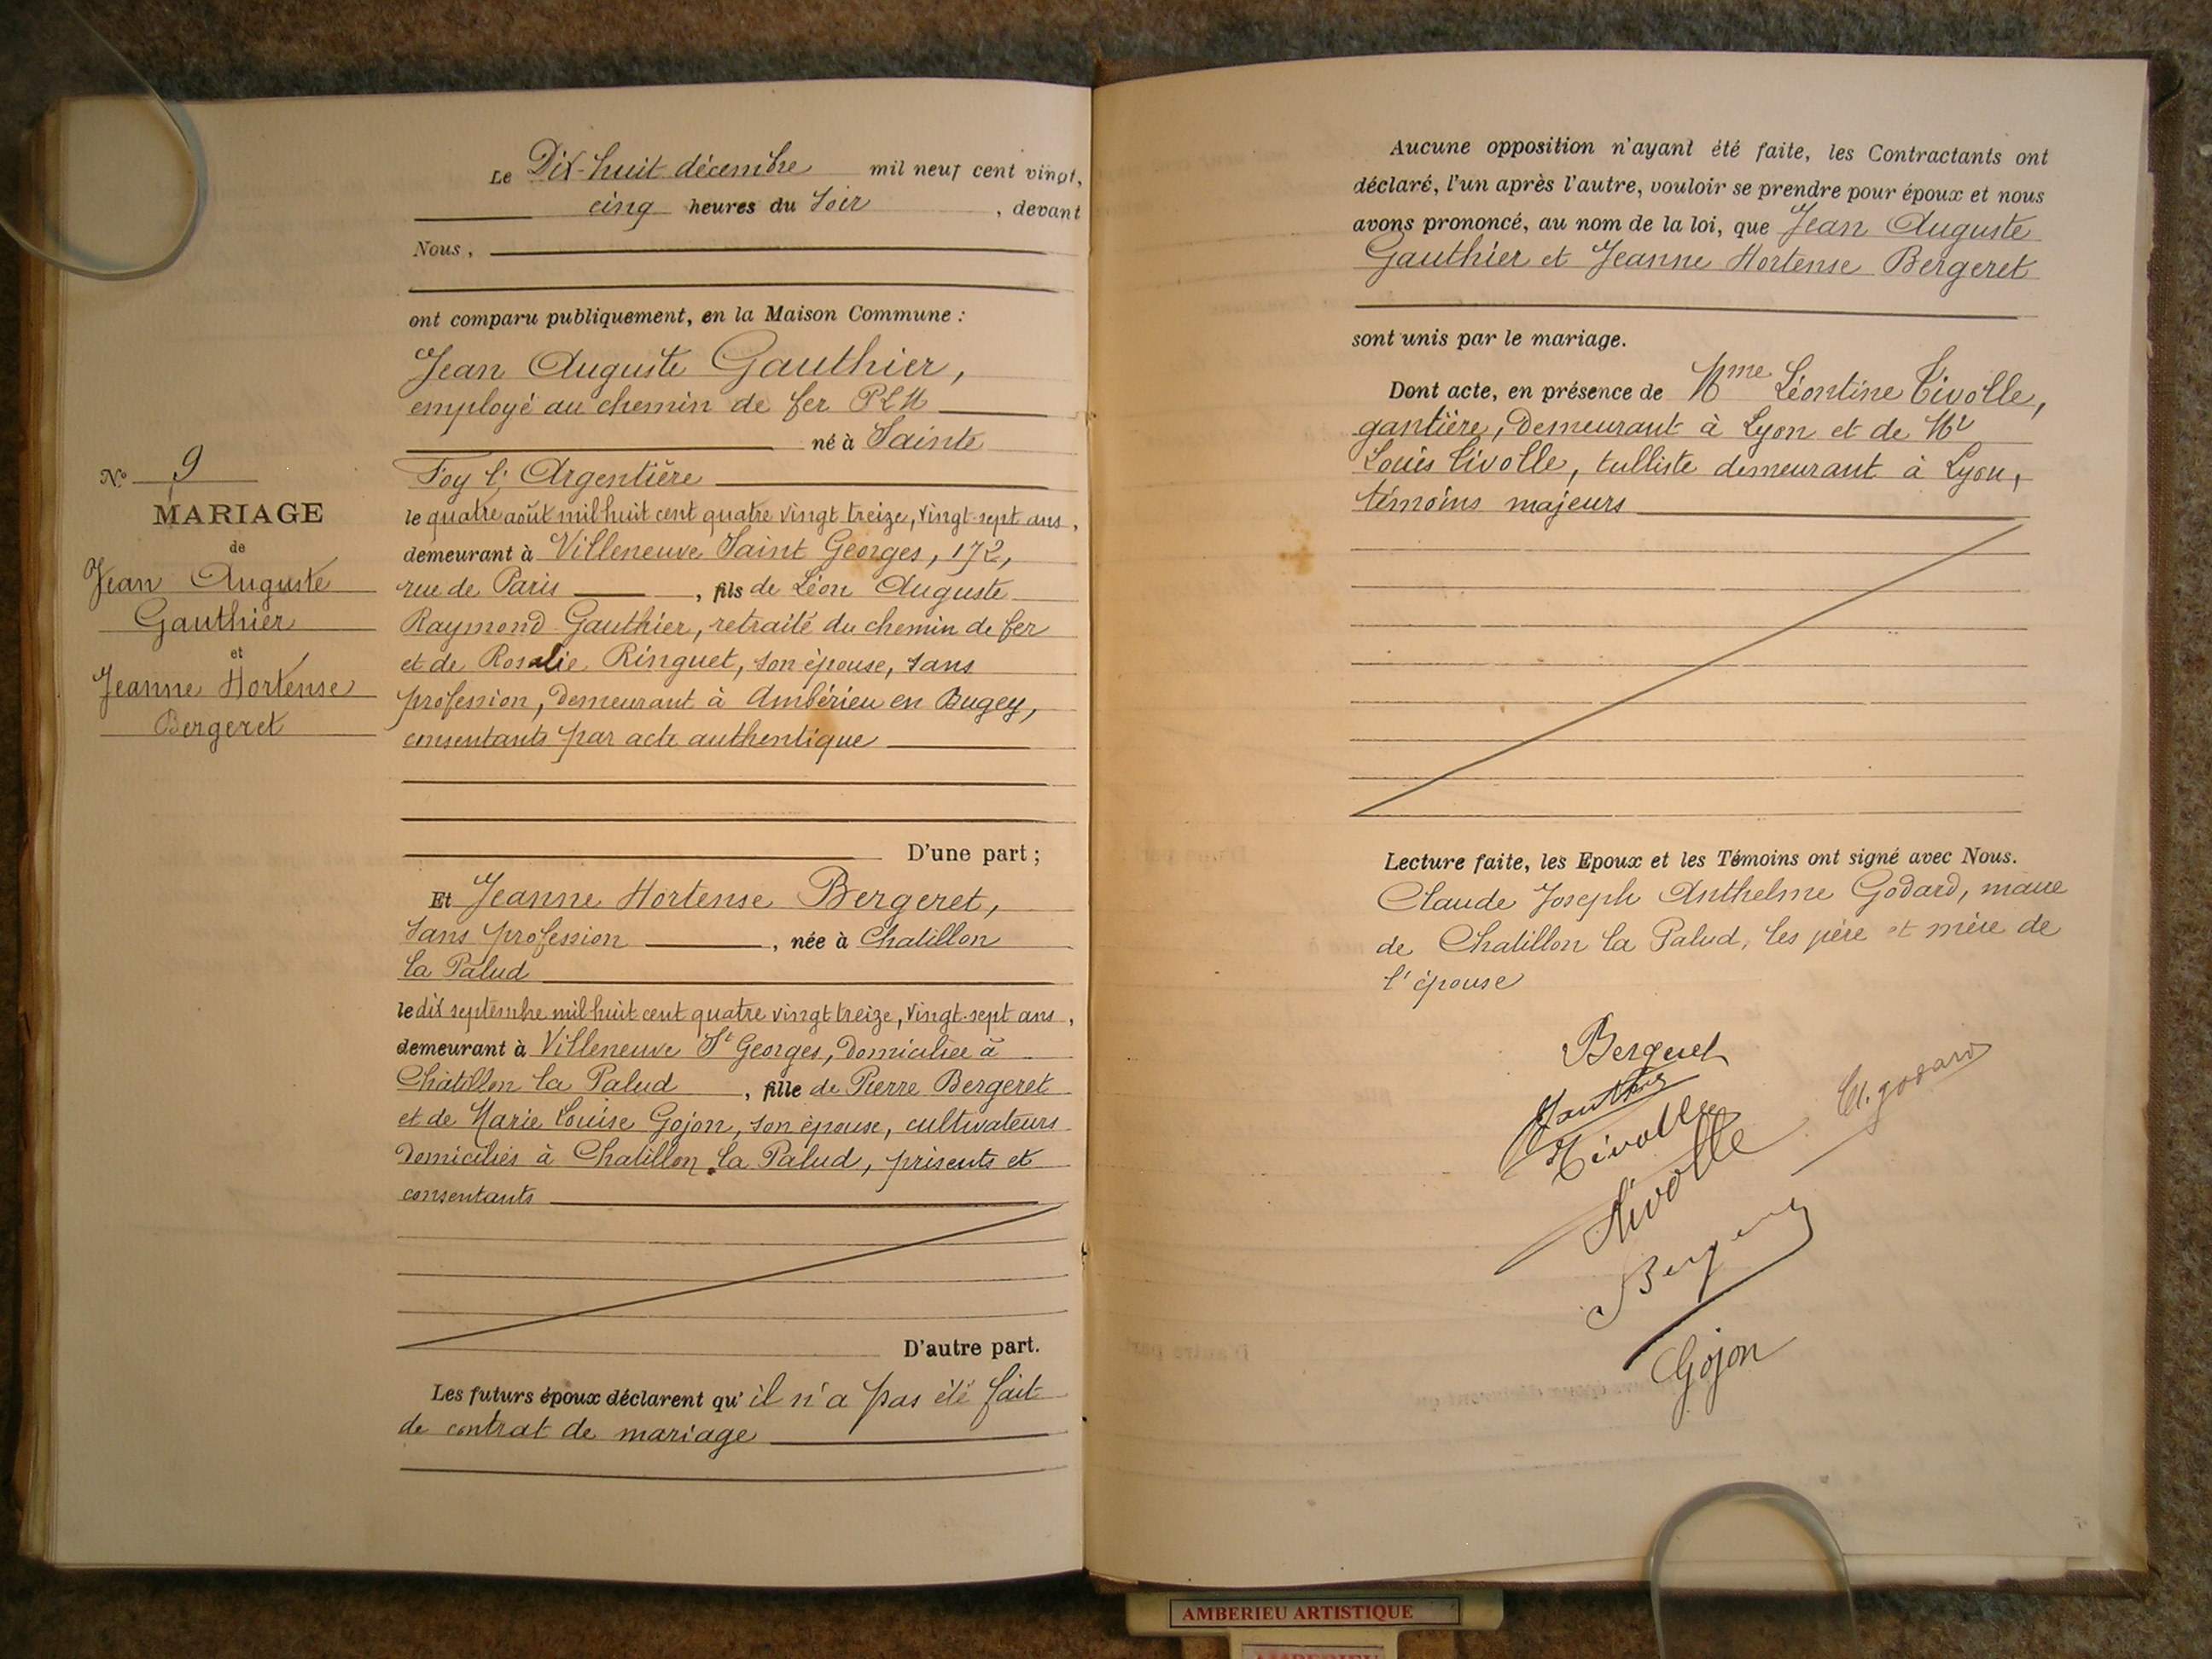 N° 9
MARIAGE
de
Jean Auguste
Gauthier
et
Jeanne Hortense
Bergeret
Le Dix-huit décembre mil neuf cent vingt,
cinq heures du soir , devant
Nous,
ont comparu publiquement, en la Maison Commune :
Jean Auguste Gauthier,
employé au chemin de fer PLM
né à Sainte
Foy l'Argentière
le quatre août mil huit cent quatre vingt treize, vingt-sept ans,
demeurant à Villeneuve Saint Georges, 172,
rue de Paris , fils de Léon Auguste
Raymond Gauthier, retraité du chemin de fer
et de Rosalie Ringuet, son épouse, sans
profession, demeurant à Ambérieu en Bugey,
consentants par acte authentique
D'une part ;
Et Jeanne Hortense Bergeret,
sans profession , née à Chatillon
la Palud
le dix septembre mil huit cent quatre vingt treize, vingt-sept ans,
demeurant à Villeneuve St Georges, domiciliée à
Châtillon la Palud , fille de Pierre Bergeret
et de Marie Louise Gojon, son épouse, cultivateurs
domiciliés à Chatillon la Palud, présents et
consentants
D'autre part.
Les futurs époux déclarent qu'il n'a pas été fait
de contrat de mariage
Aucune opposition n'ayant été faite, les Contractants ont
déclaré, l'un après l'autre, vouloir se prendre pour époux et nous
avons prononcé, au nom de la loi, que Jean Auguste
Gauthier et Jeanne Hortense Bergeret
sont unis par le mariage.
Dont acte, en présence de Mme Léontine Tivolle,
gantière, demeurant à Lyon et de Mr
Louis Tivolle, tulliste demeurant à Lyon,
témoins majeurs
Lecture faite, les Epoux et les Témoins ont signé avec Nous.
Claude Joseph Anthelme Godard, maire
de Chatillon la Palud, les père et mère de
l'épouse
Bergeret
Gauthier
Tivolle
Cl. godard
Tivolle
Bergeret
Gojon
AMBERIEU ARTISTIQUE
AMBERIEU